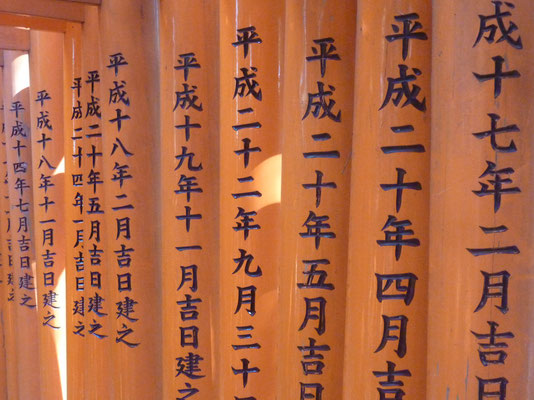 成十七年二月吉日
平成二十年四月吉
平成二十年五月吉日
平成二十二年九月三十
平成十九年十一月吉日建
平成十八年二月吉日建之
平成二十年五月吉日建之
平成二十四年 月吉日建之
平成十八年十一月吉日建之
平成十四年七月吉日建之